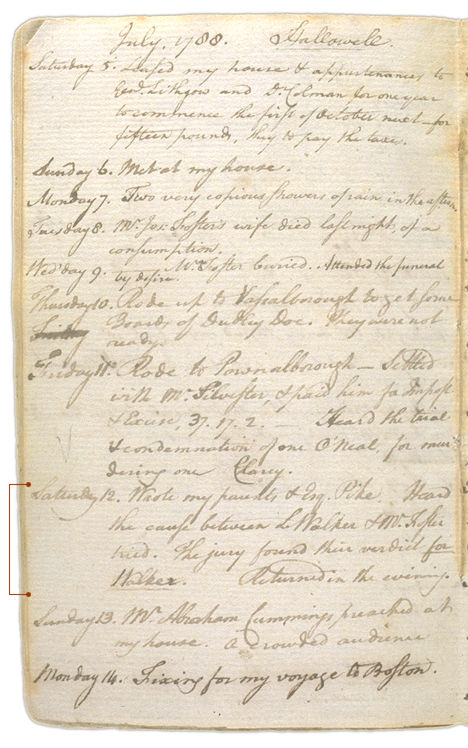 July, 1788. Hallowell.
Saturday 5. Leased my house & appurtenances to
Genl. Lithgow and Dr. Colman for one year
to commence the first of October next — for
fifteen pounds, they to pay the taxes.
Sunday 6. Met at my house.
Monday 7. Two very copious showers of rain in the aftern.
Tuesday 8. Mr. Jos. Foster's wife died last night, of a
consumption.
Wed'day 9. Mrs. Foster buried. Attended the funeral
by desire.
Thursday 10. Rode up to Vassalborough to get some
Boards of Dudley Doe. They were not
ready.
Friday 11. Rode to Pownalborough — Settled
with Mr. Silvester & paid him for Impost
& Excise, 37. 17. 2. — Heard the trial
& condemnation of one O'Neal, for mur-
dering one Clary.
Saturday 12. Wrote my parents & Esq. Pike. Heard
the cause between Walker & Mr. Foster
tried. The jury found their verdict for
Walker. Returned in the evening.
Sunday 13. Mr. Abraham Cummings preached at
my house. A crowded audience
Monday 14. Fixing for my voyage to Boston.